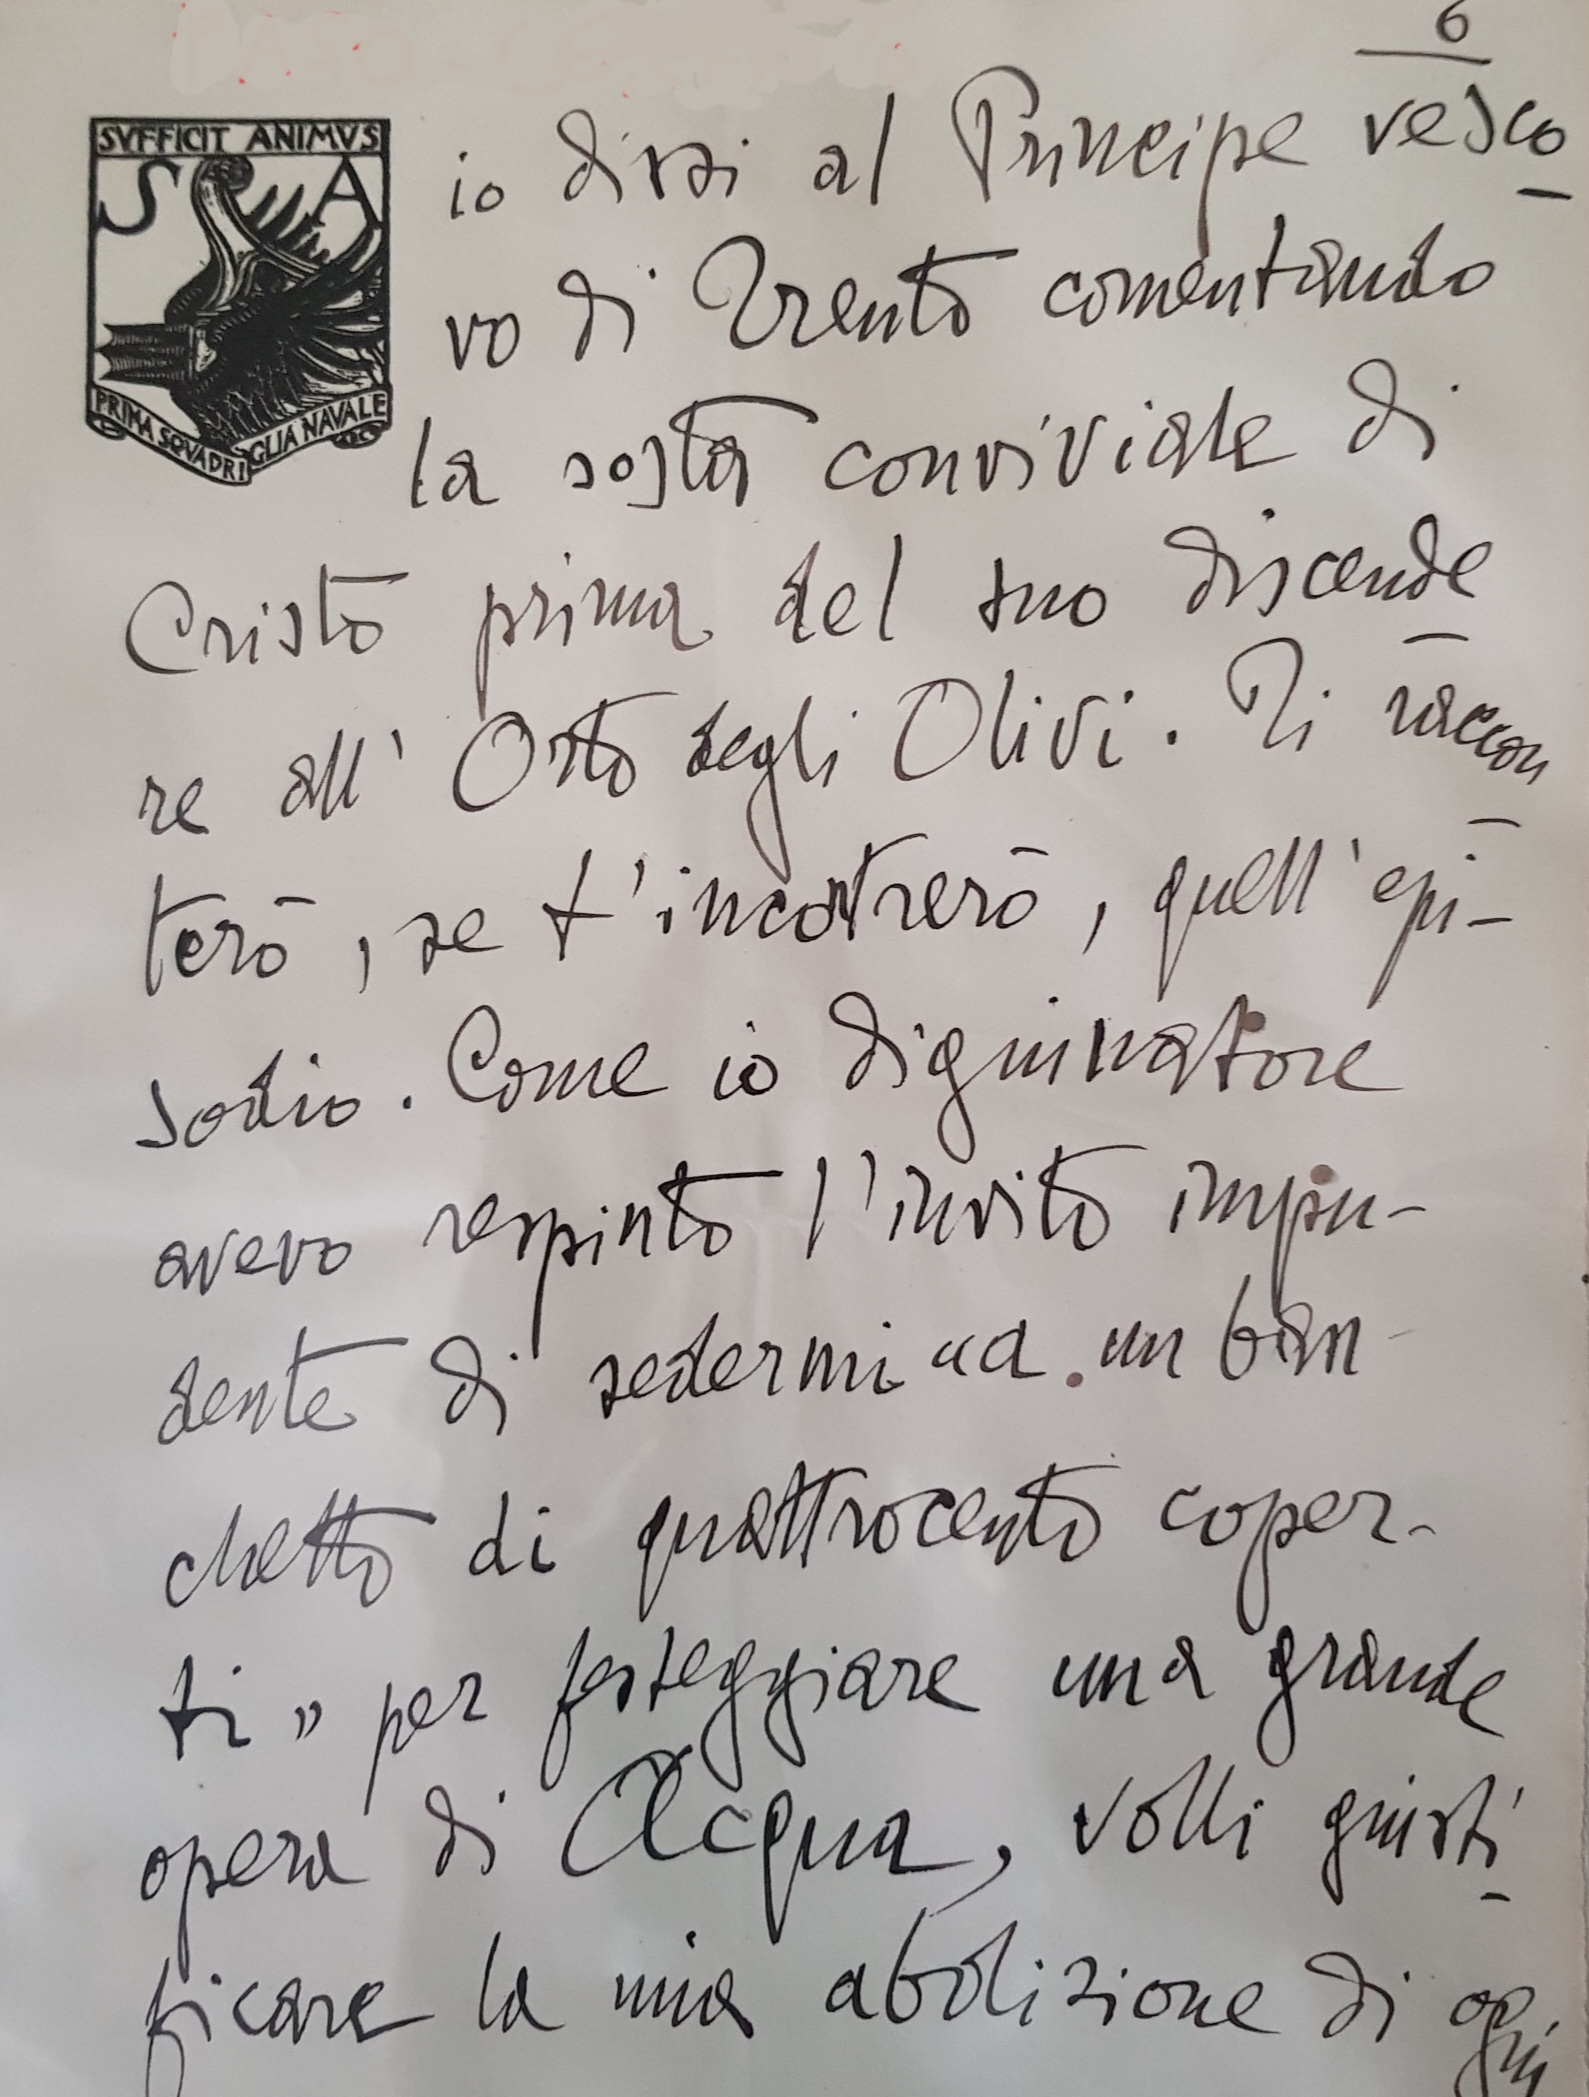 6
SVFFICIT ANIMVS
S A
PRIMA SQVADRIGLIA NAVALE
io dissi al Principe vesco-
vo di Trento comentando
la sosta conviviale di
Cristo prima del suo discende-
re all' Orto degli Olivi. Ti raccon-
terò, se t'incontrerò, quell'epi-
sodio. Come io digiunatore
avevo respinto l'invito impu-
dente di sedermi «a un ban-
chetto di quattrocento coper-
ti» per festeggiare una grande
opera di Acqua, volli giusti-
ficare la mia abolizione di ogni